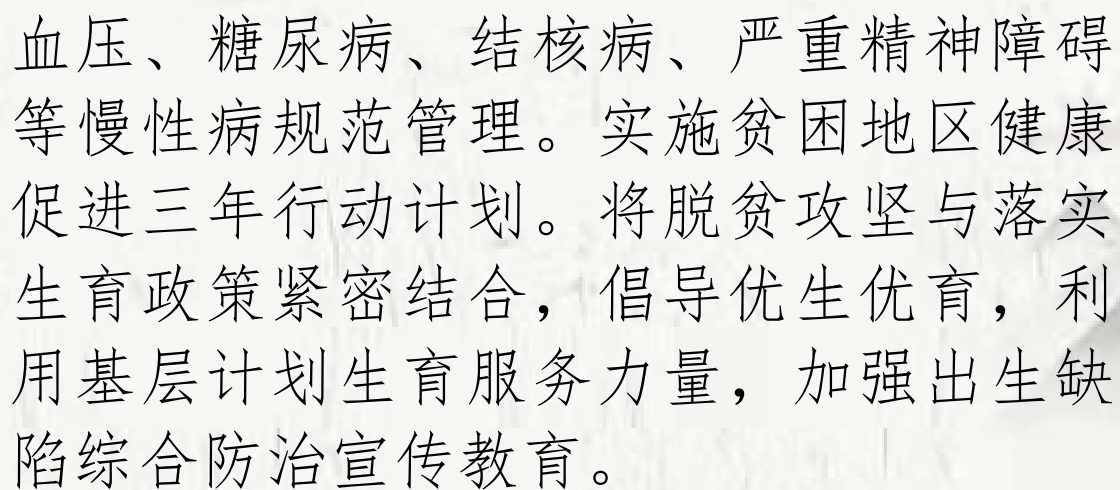 血压、糖尿病、结核病、严重精神障碍
等慢性病规范管理。实施贫困地区健康
促进三年行动计划。将脱贫攻坚与落实
生育政策紧密结合，倡导优生优育，利
用基层计划生育服务力量，加强出生缺
陷综合防治宣传教育。